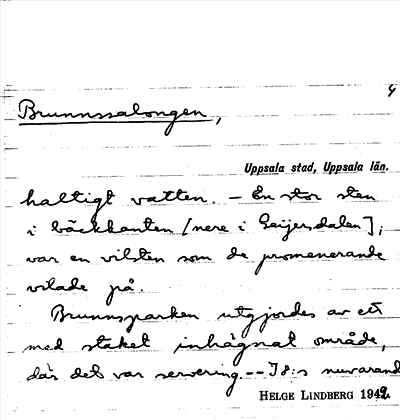 4
Brunnssalongen,
Uppsala stad, Uppsala län.
haltigt vatten. – En stor sten
i bäckkanten [nere i Geijersdalen],
var en vilsten som de promenerande
vilade på.
Brunnsparken utgjordes av ett
med staket inhägnat område,
där det var servering. -- I 8:s nuvarand
HELGE LINDBERG 1942.